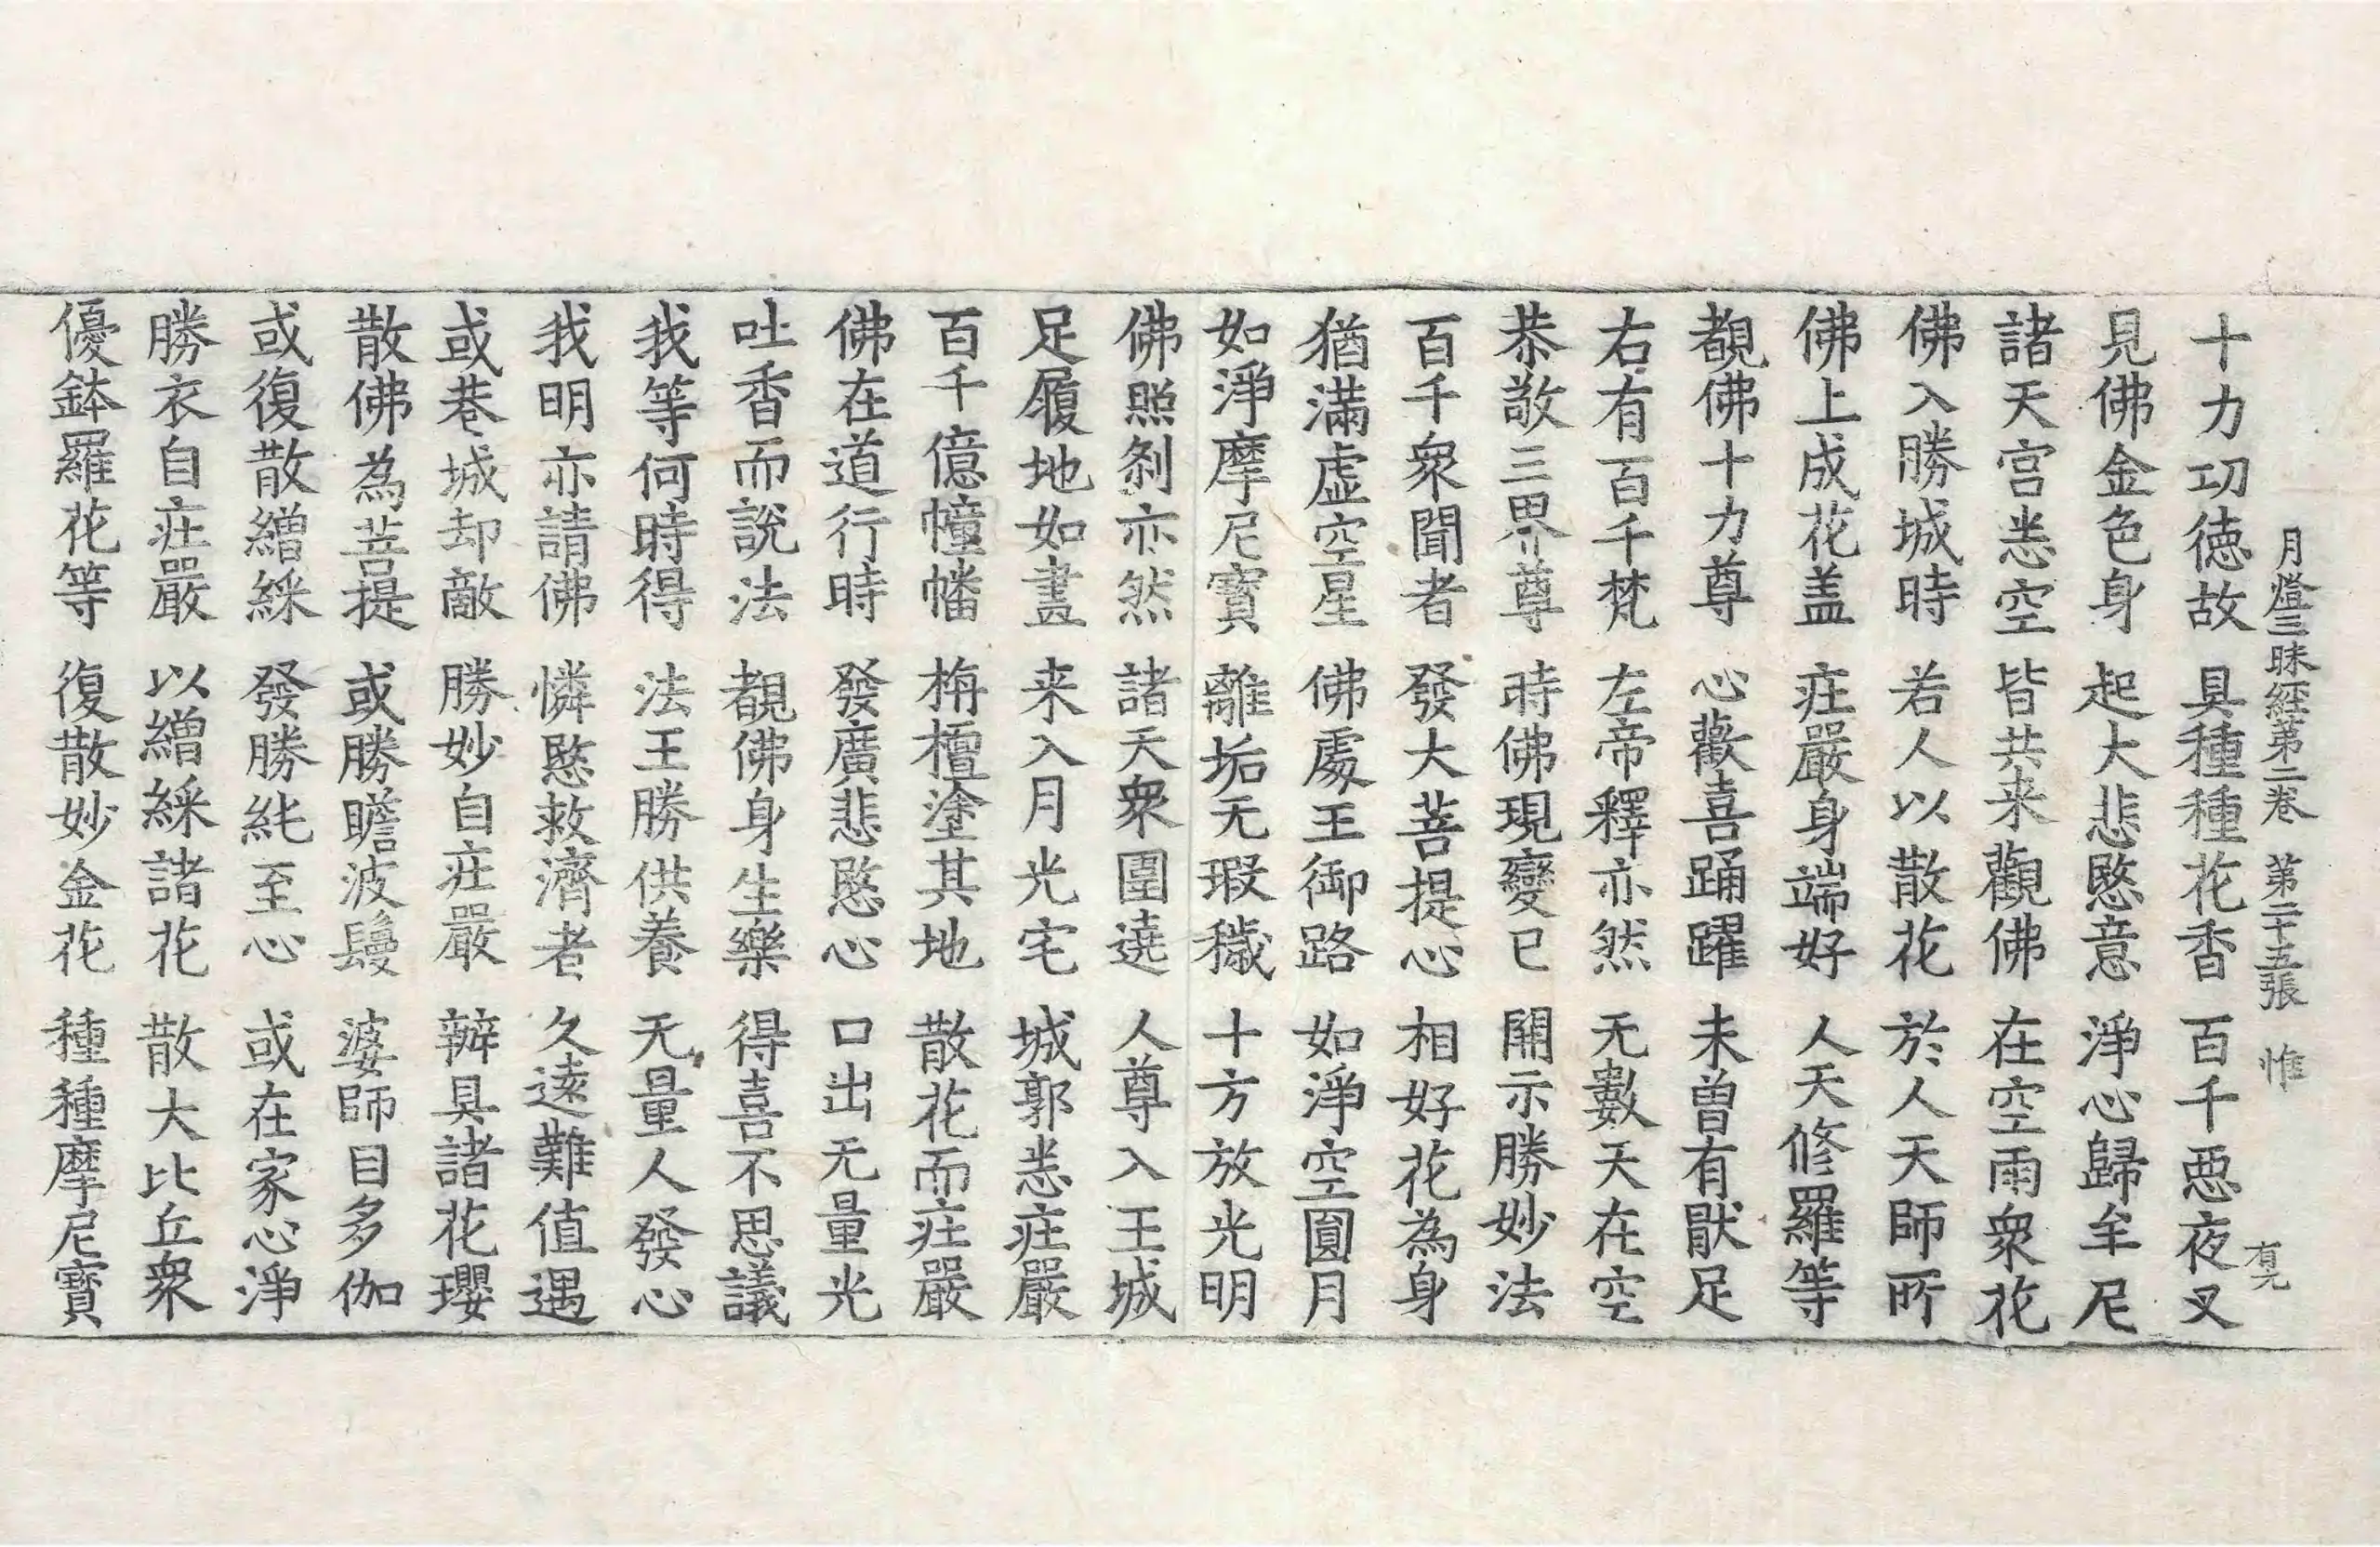 月燈三昧經第二卷　第二十五張　惟
有光
十力功德故　具種種花香　百千恶夜叉
見佛金色身　起大悲愍意　淨心歸牟尼
諸天宮悉空　皆共来觀佛　在空雨衆花
佛入勝城時　若人以散花　於人天師所
佛上成花盖　㽵嚴身端好　人天修羅等
覩佛十力尊　心歡喜踊躍　未曽有猒足
右有百千梵　左帝釋亦然　无數天在空
恭敬三界尊　時佛現變已　開示勝妙法
百千衆聞者　發大菩提心　相好花為身
猶滿虛空星　佛處王御路　如淨空圓月
如淨摩尼寶　離垢无瑕穢　十方放光明
佛照剎亦然　諸天衆圍遶　人尊入王城
足履地如畫　来入月光宅　城郭悉㽵嚴
百千億幢幡　栴檀塗其地　散花而㽵嚴
佛在道行時　發廣悲愍心　口出无量光
吐香而說法　覩佛身生樂　得喜不思議
我等何時得　法王勝供養　无量人發心
我明亦請佛　憐愍救濟者　久遠難值遇
或巷城却敵　勝妙自㽵嚴　辦具諸花瓔
散佛為菩提　或勝瞻波鬘　婆師目多伽
或復散繒綵　發勝純至心　或在家心淨
勝衣自㽵嚴　以繒綵諸花　散大比丘衆
優鉢羅花等　復散妙金花　種種摩尼寶